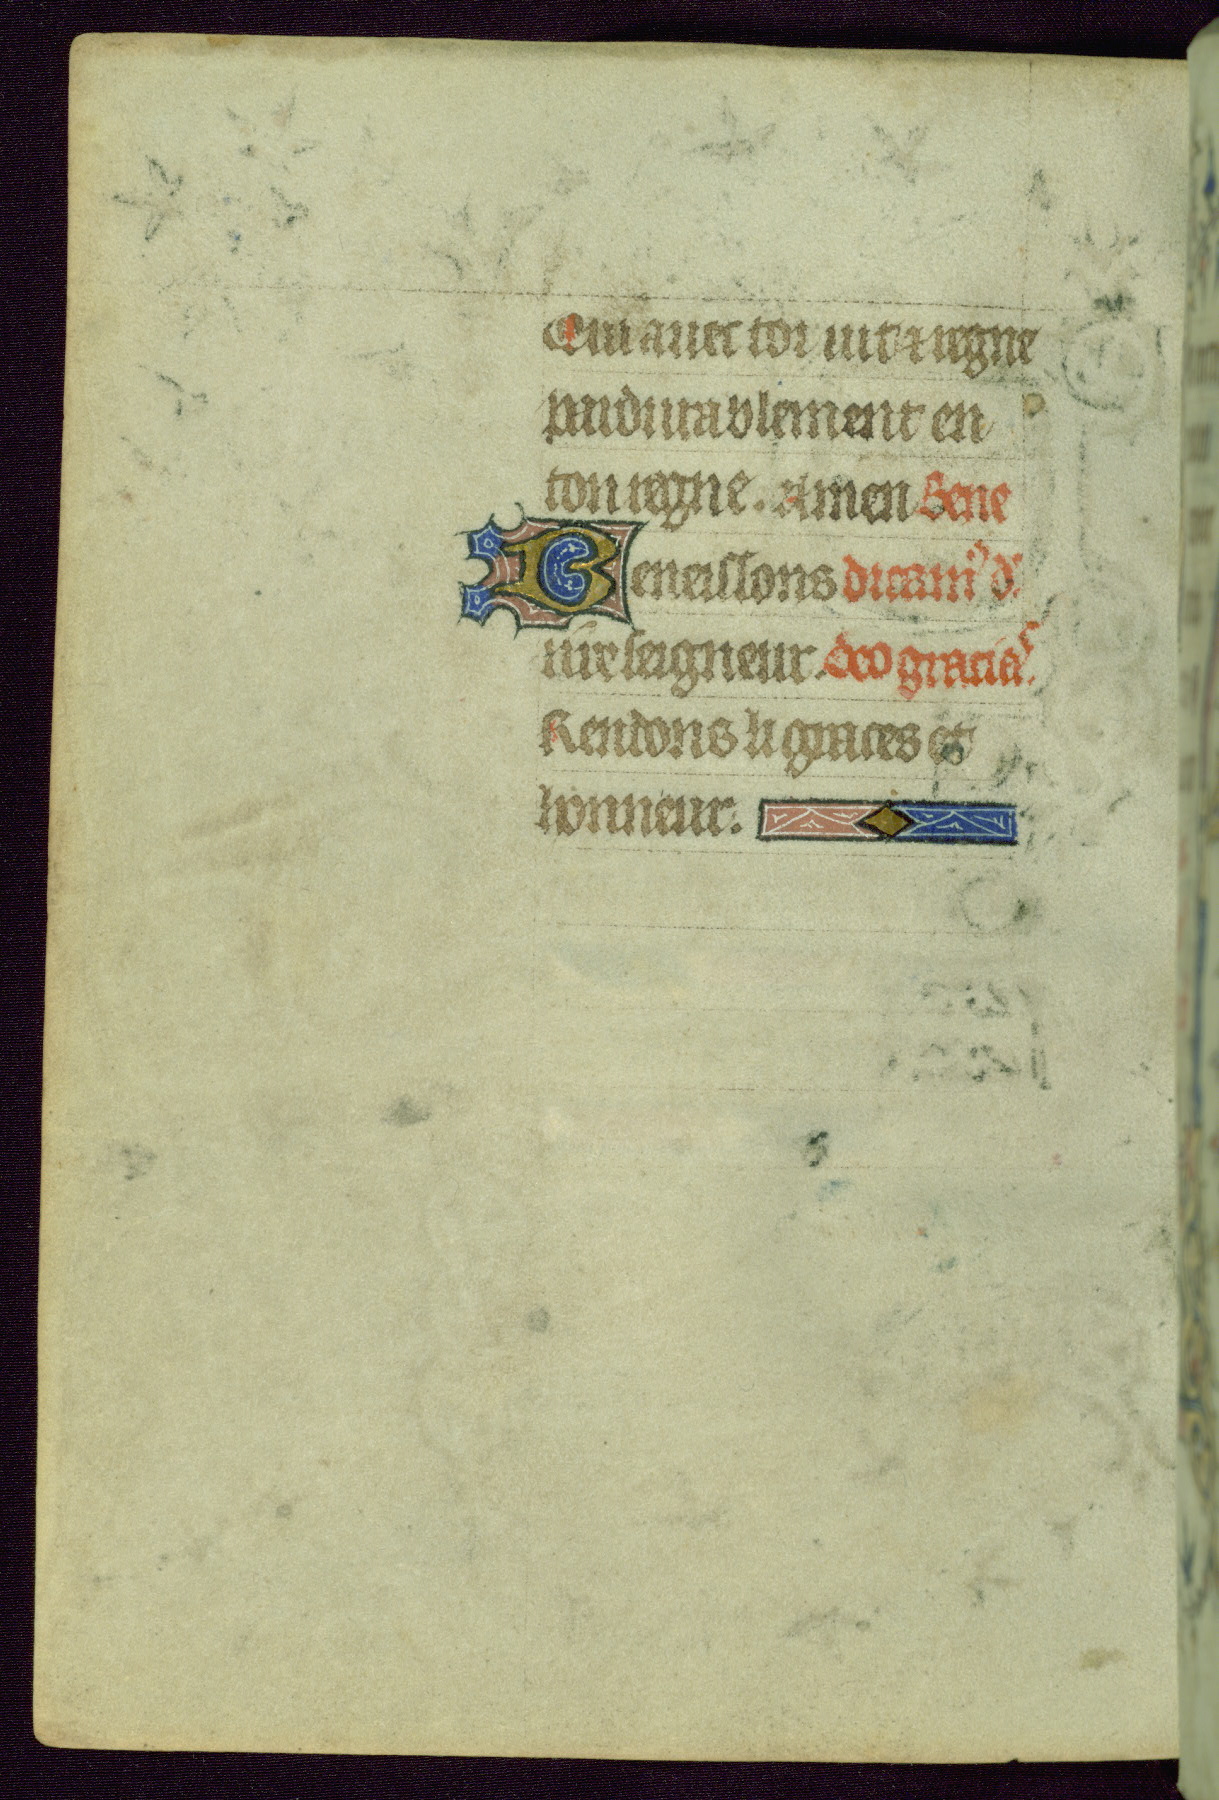 Qui auec toi uit & regne
pardurablement en
ton regne. Amen Bene
Beneissons dicamꝰ dō.
nr̄e seigneur. deo gracias.
Rendons li graces et
honneur.